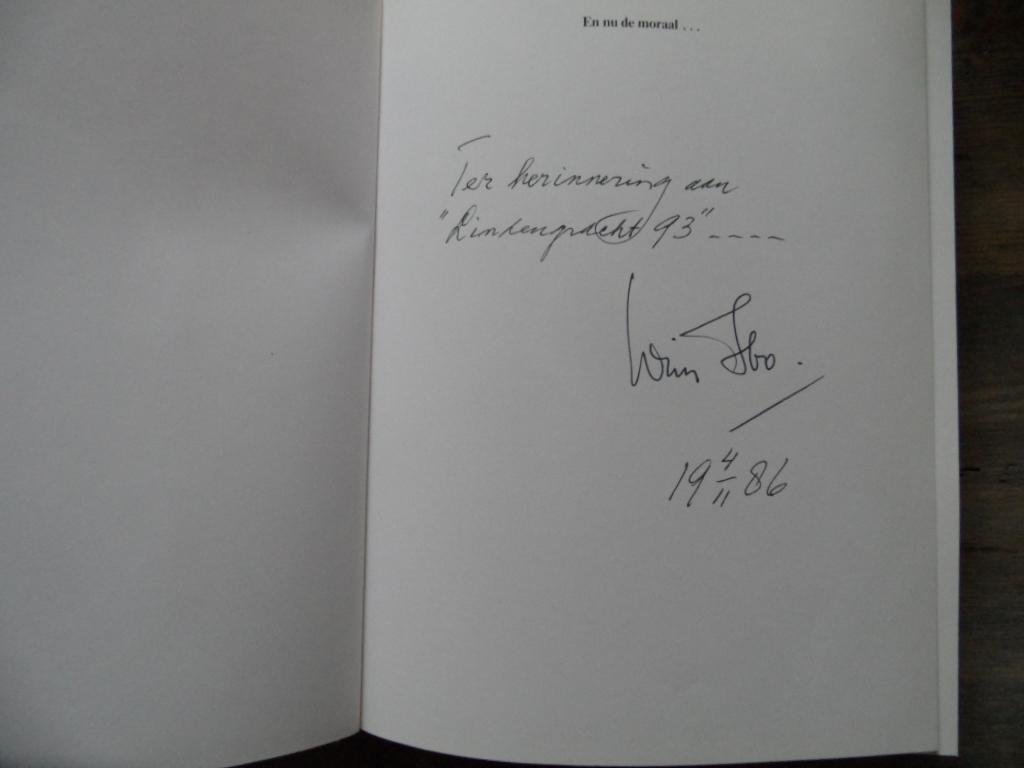 En nu de moraal . . .
Ter herinnering aan
"Lindengracht 93" ----
Wim Ibo.
19 4/11 86